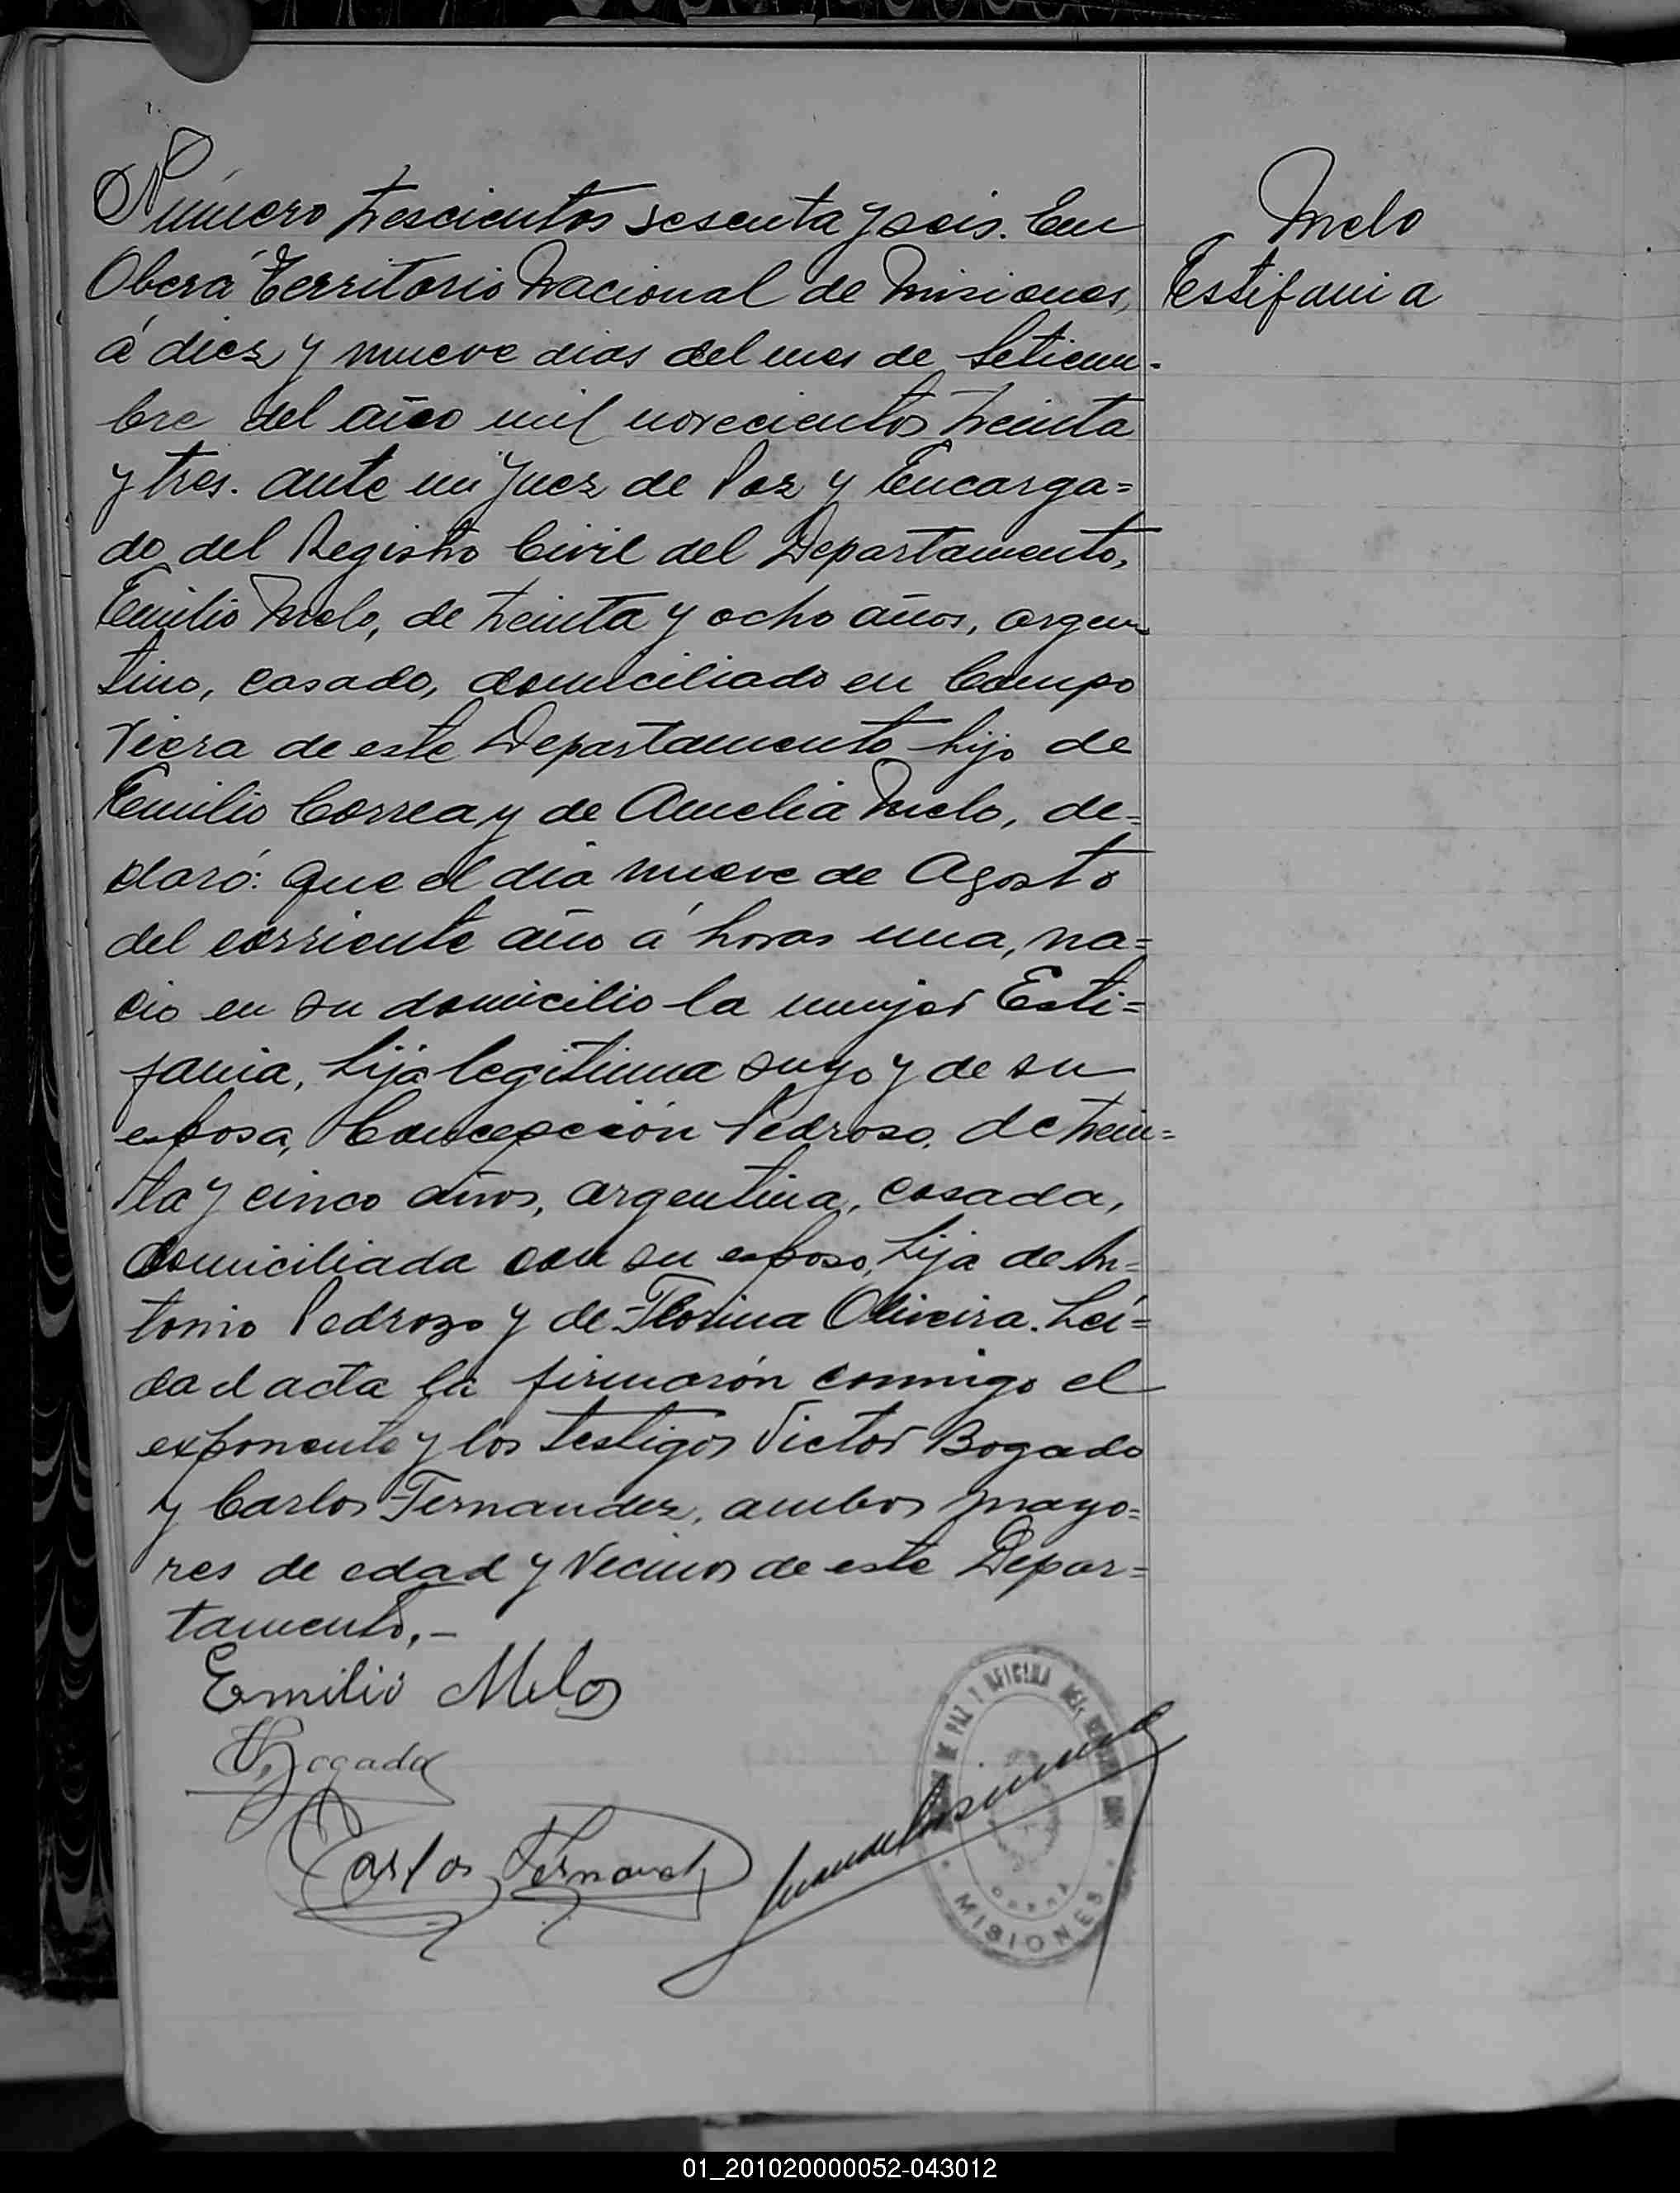 Número trescientos sesenta y seis. En
Oberá Territorio Nacional de Misiones,
á diez y nueve dias del mes de Setiem-
bre del año mil novecientos treinta
y tres. ante mi Juez de Paz y Encarga=
do del Registro Civil del Departamento,
Emilio Melo, de treinta y ocho años, argen
tino, casado, domiciliado en Campo
Viera de este Departamento hijo de
Emilio Correa y de Amelia Melo, de=
claró: que el dia nueve de Agosto
del corriente año á horas una, na=
cio en su domicilio la mujer Esti=
fania, hija legitima suya y de su
esposa, Concepción Pedroso, de trein=
ta y cinco años, argentina, casada,
domiciliada con su esposo, hija de An=
tonio Pedrozo y de Florina Oliveira. Leí=
da el acta la firmarón conmigo el
exponente y los testigos Victor Bogado
y Carlos Fernandez, ambos mayo=
res de edad y vecinos de este Depar=
tamento.-
Melo
Estifania
Emilio Melo
V. Bogado
Carlos Fernandez
DE PAZ Y OFICINA DEL
OBERA
MISIONES
01_201020000052-043012